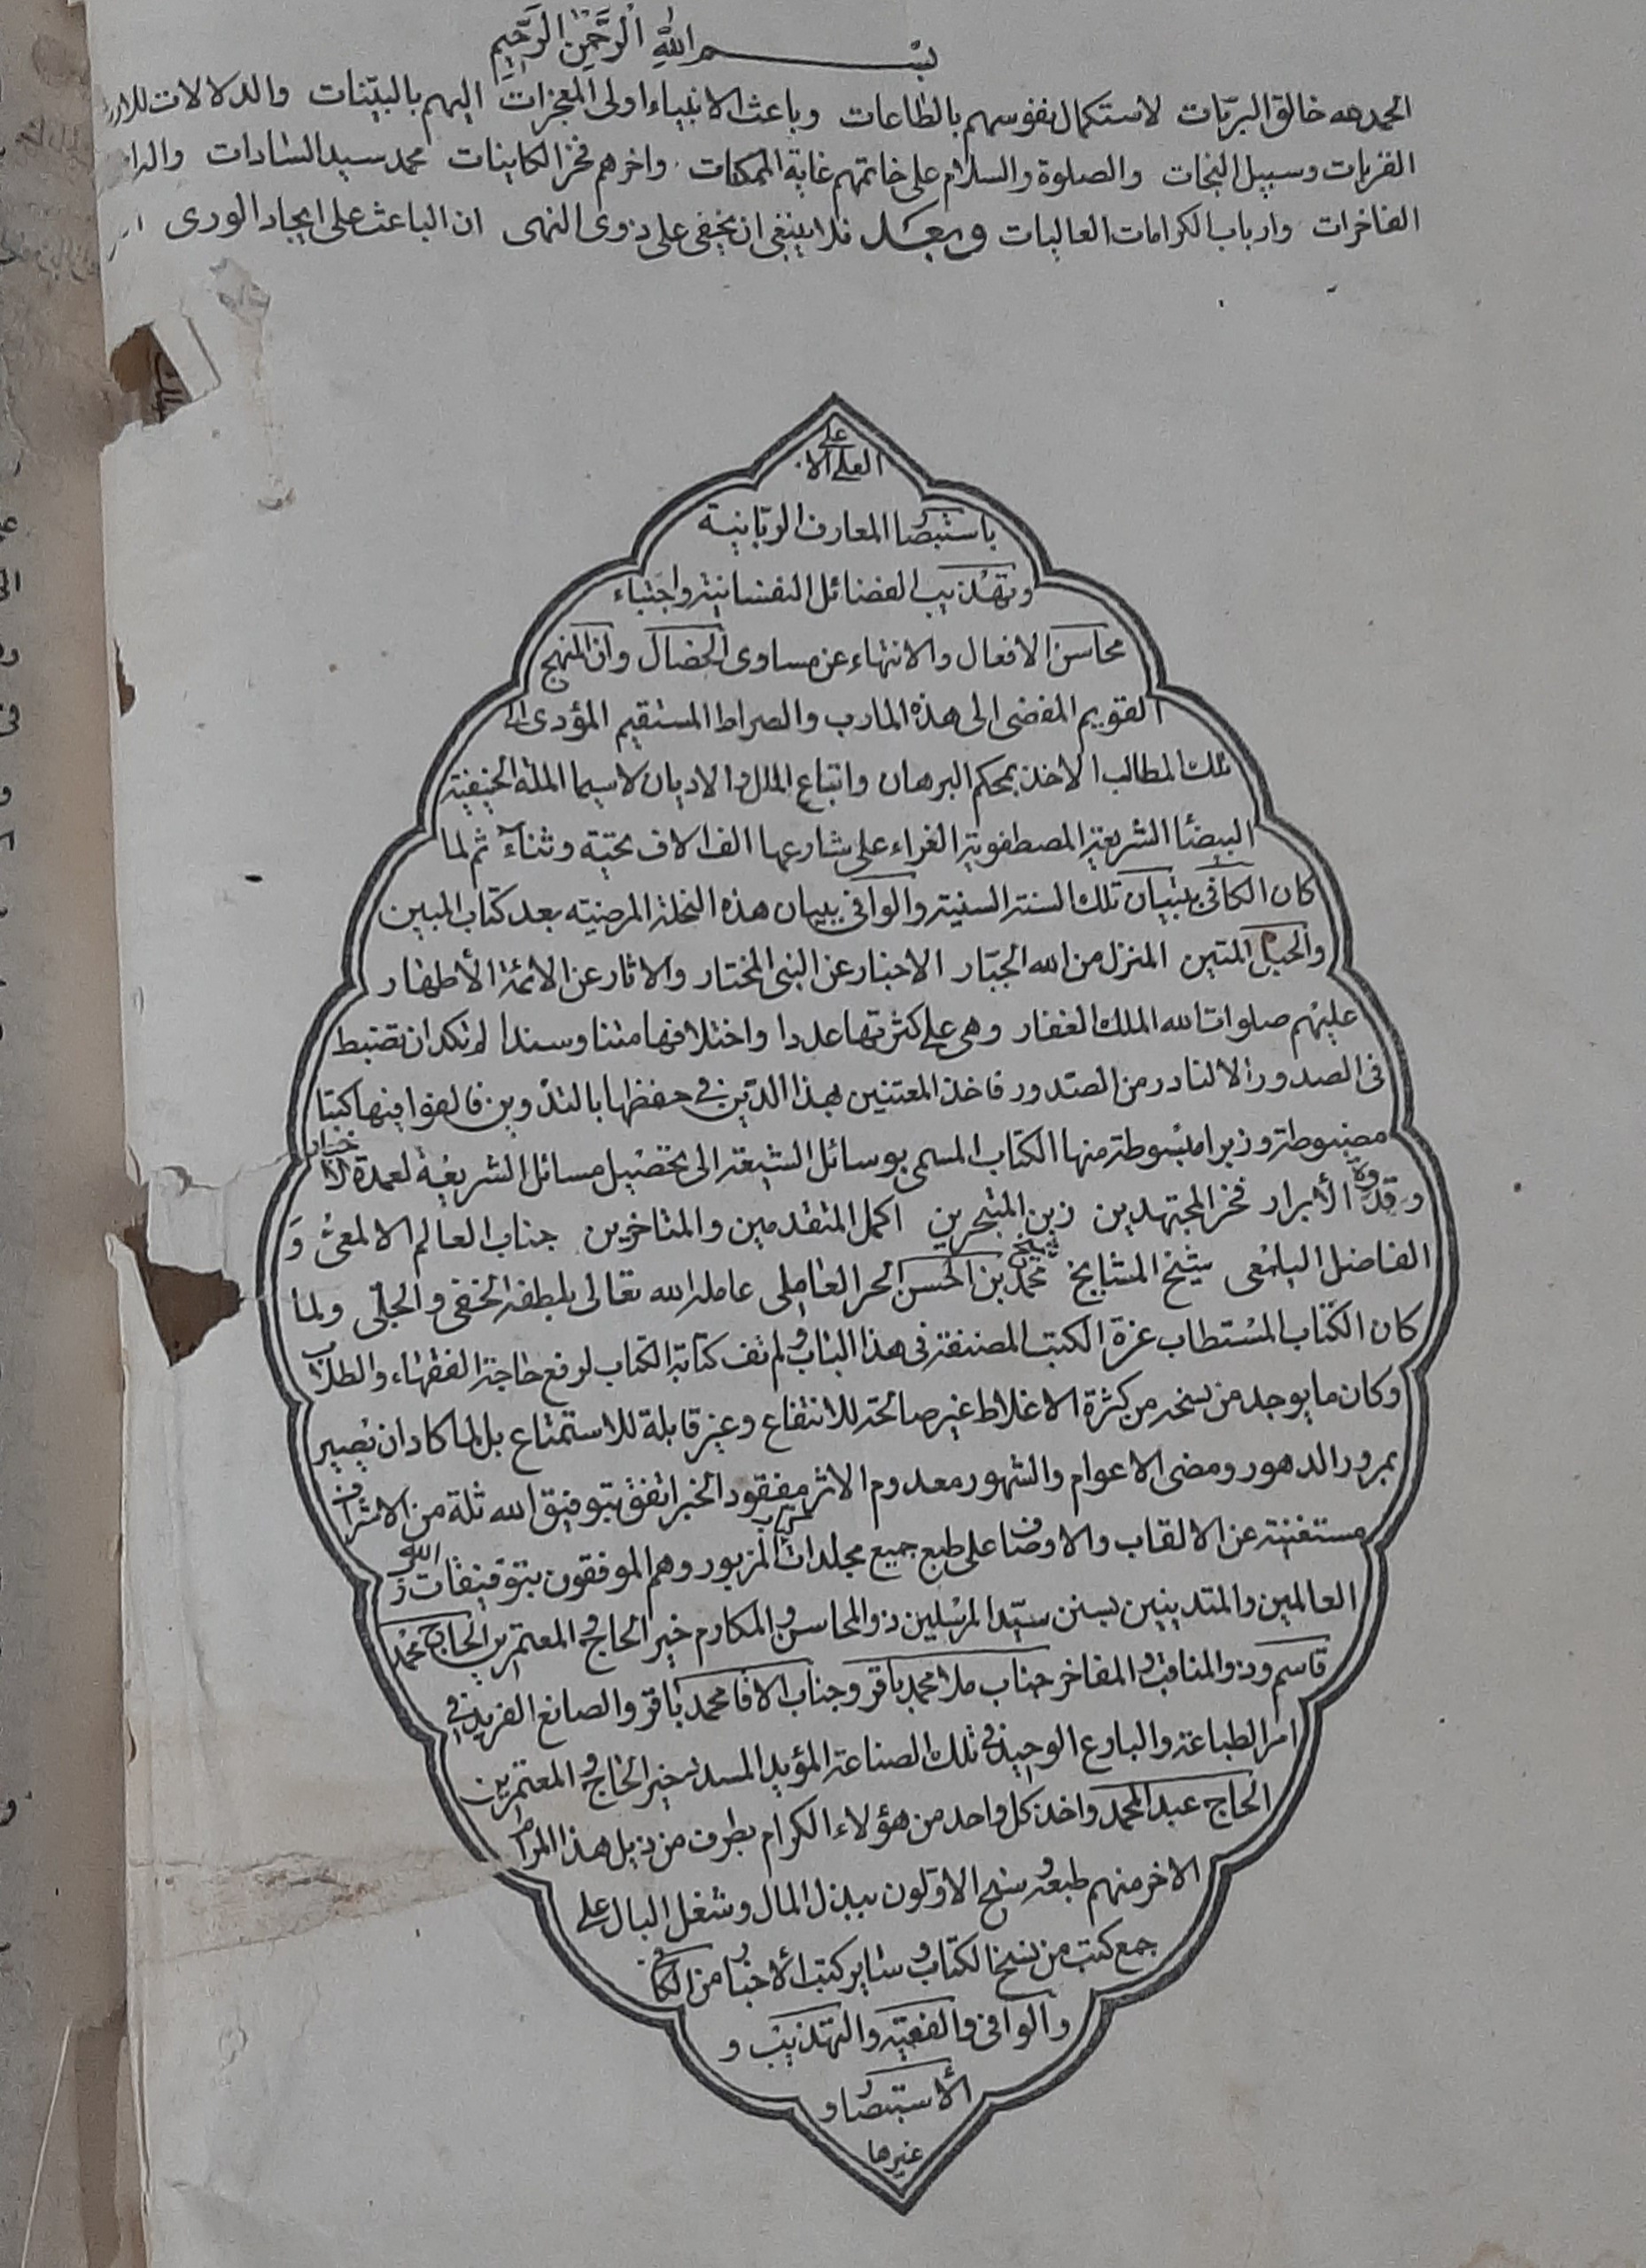 بسم الله الرحمن الرحيم
الحمد لله خالق البريات لاستكمال نفوسهم بالطاعات وباعث الانبياء اولى المعجزات اليهم بالبينات والدلالات
القربات وسبيل النجات والصلوة والسلام على خاتمهم غاية الممكنات واخرهم فخر الكاينات محمد سيد السادات
الفاخرات وارباب الكرامات العاليات وبعد فلا ينبغى ان يخفى على ذوى النهى ان الباعث على ايجاد الورى
على
العلى الا
باستبصار المعارف الربانية
وتهذيب الفضائل النفسانيه واجتباء
محاسن الافعال والانتهاء عن مساوى الخصال وان المنهج
القويم المفضى الى هذه المارب والصراط المستقيم المؤدى الى
تلك المطالب الاخذ بمحكم البرهان واتباع الملل والاديان لاسيما الملة الحنيفية
البيضا الشريعة المصطفوية الغراء على شارعها الف الاف تحية وثناء ثم لما
كان الكافى بتبيان تلك السنة السنية والوافى ببيان هذه النحلة المرضيه بعد كتاب المبين
والحبل المتين المنزل من الله الجبار الاخبار عن النبى المختار والاثار عن الائمة الأطهار
عليهم صلوات الله الملك الغفار وهى على كثرتها عددا واختلافها متنا وسندا لم تكد ان تضبط
فى الصدور الا النادر من الصدور فاخذ المعتنين بهذا الدين فى حفظها بالتدوين فالفوا فيها كتبا
مضبوطة وزبرا مبسوطة منها الكتاب المسمى بوسائل الشيعة الى تحصيل مسائل الشريعة لعمدة الاخيار
وقدوة الأبرار فخر المجتهدين زين المتبحرين اكمل المتقدمين والمتاخرين جناب العالم الالمعى و
الفاضل اليلمعى شيخ المشايخ شيخ محمد بن الحسن الحر العاملى عامله الله تعالى بلطفه الخفى والجلى ولما
كان الكتاب المستطاب غرة الكتب المصنفة فى هذا الباب ولم تف كتابة الكتاب لرفع حاجة الفقهاء والطلاب
وكان ما يوجد من نسخه من كثرة الاغلاط غير صالحة للانتفاع وغير قابلة للاستمتاع بل لما كاد ان يصير
بمرور الدهور ومضى الاعوام والشهور معدوم الاثر مفقود الخبر اتفق بتوفيق الله ثلة من الاشراف
مستغنية عن الالقاب والاوصاف على طبع جميع مجلدات الكتاب المزبور وهم الموفقون بتوفيقات الله رب
العالمين والمتدينين بسنن سيد المرسلين ذو المحاسن والمكارم خير الحاج و المعتمرين الحاج محمد
قاسم وذو المناقب والمفاخر جناب ملا محمد باقر وجناب الاقا محمد باقر والصانع الفريد فى
امر الطباعة والبارع الوحيد فى تلك الصناعة المؤيد المسدد خير الحاج و المعتمرين
الحاج عبد المحمد واخذ كل واحد من هؤلاء الكرام بطرف من ذيل هذا المرام
الاخر منهم طبعه و الاولون ببذل المال وشغل البال على
جمع كتب من نسخ الكتاب و ساير كتب الأخبار من الكافى
والوافى والفقيه والتهذيب و
الأستبصار و
غيرها